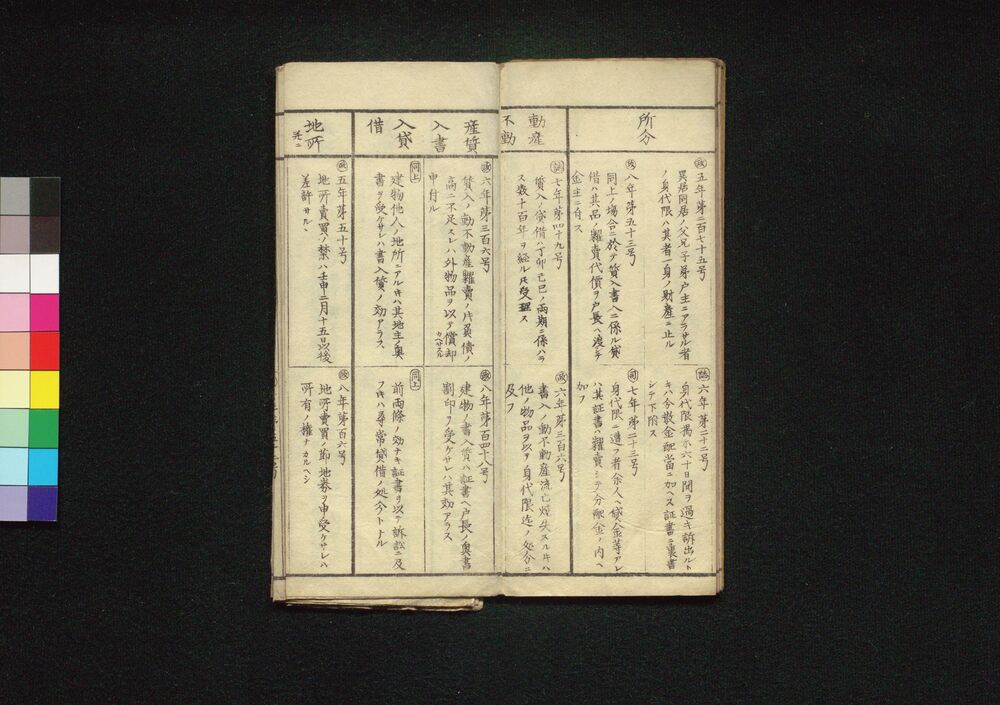 所分
政 五年第二百七十五号
異居同居ノ父兄子弟戸主ニアラサル者
ノ身代限ハ其者一身ノ財産ニ止ル
政 八年第五十三号
同上ノ場合ニ於テ質入書入ニ係ル貸
借ハ其品ノ糶賣代價ヲ戸長ヘ渡シテ
金主ニ付ス
六年第二十二号
身代限掲示六十日間ヲ過キ訴出ルト
キハ分散金配當ニ加ヘス証書ニ裏書
シテ下附ス
司 七年第二十三号
身代限ニ遭フ者余人ヘ貸金等アレ
ハ其証書ハ糶賣シテ分配金ノ内ヘ
加フ
動産
不動
七年第四十九号
質入ノ貸借ハ丁卯己巳ノ両期ニ係ハラ
ス数十百年ヲ経ル𪜈受理ス
政 六年第三百六号
書入ノ動不動産流亡焼失スルキハ
他ノ物品ヲ以テ身代限迄ノ処分ニ
及フ
産質
入書
入貸
借
政 六年第三百六号
質入ノ動不動産糶賣ノ片負債ノ
高ニ不足スレハ外物品ヲ以テ償却
カヘサスル
申付ル
政 八年第百四十八号
建物ノ書入質ハ証書ヘ戸長ノ奥書
割印ヲ受ケサレハ其効アラス
同上
建物他人ノ地所ニアルキハ其地主ノ奥
書ヲ受ケサレハ書入質ノ効アラス
同上
前両條ノ効ナキ証書ヲ以テ訴訟ニ及
フキハ尋常貸借ノ処分トナル
地所
政 五年第五十号
地所賣買ノ禁ハ壬申二月十五日以後
差許サル
政 八年第百六号
地所賣買ノ節地券ヲ申受ケサレハ
所有ノ権ナカルヘシ